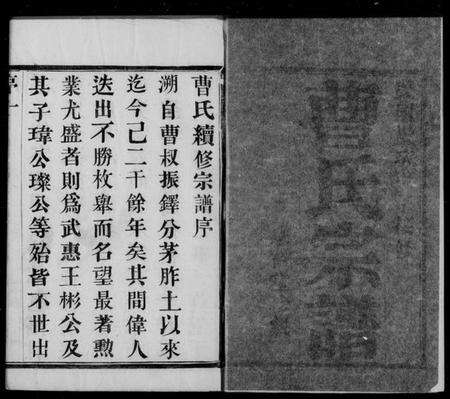 曹氏宗譜
曹氏續修宗譜序
溯自曹叔振鐸分茅胙土以來
迄今已二千餘年矣其間偉人
迭出不勝枚舉而名望最著勲
業尤盛者則為武惠王彬公及
其子瑋公璨公等殆皆不世出
序一